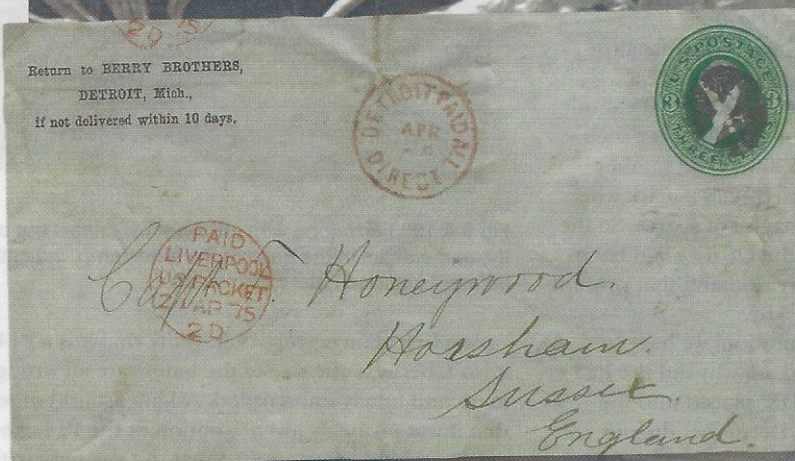 2D
Return to BERRY BROTHERS,
DETROIT, Mich.,
if not delivered within 10 days.
DETROIT PAID ALL
APR
DIRECT
U.S. POSTAGE
3 3
THREE CENTS
PAID
LIVERPOOL
US PACKET
21 AP 75
2D
Capt. Honeywood.
Horsham.
Sussex.
England.